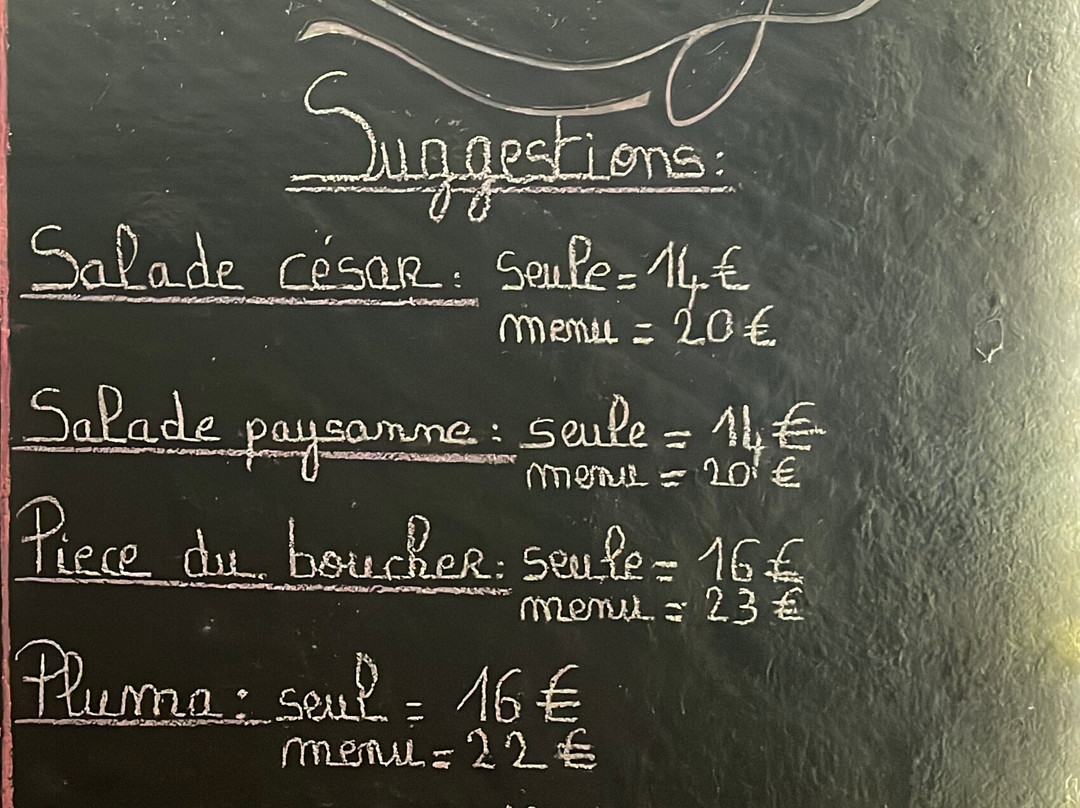 Suggestions:
Salade césar: seule = 14 €
menu = 20 €
Salade paysanne: seule = 14 €
menu = 20 €
Piece du boucher: seule = 16 €
menu = 23 €
Pluma: seul = 16 €
menu = 22 €